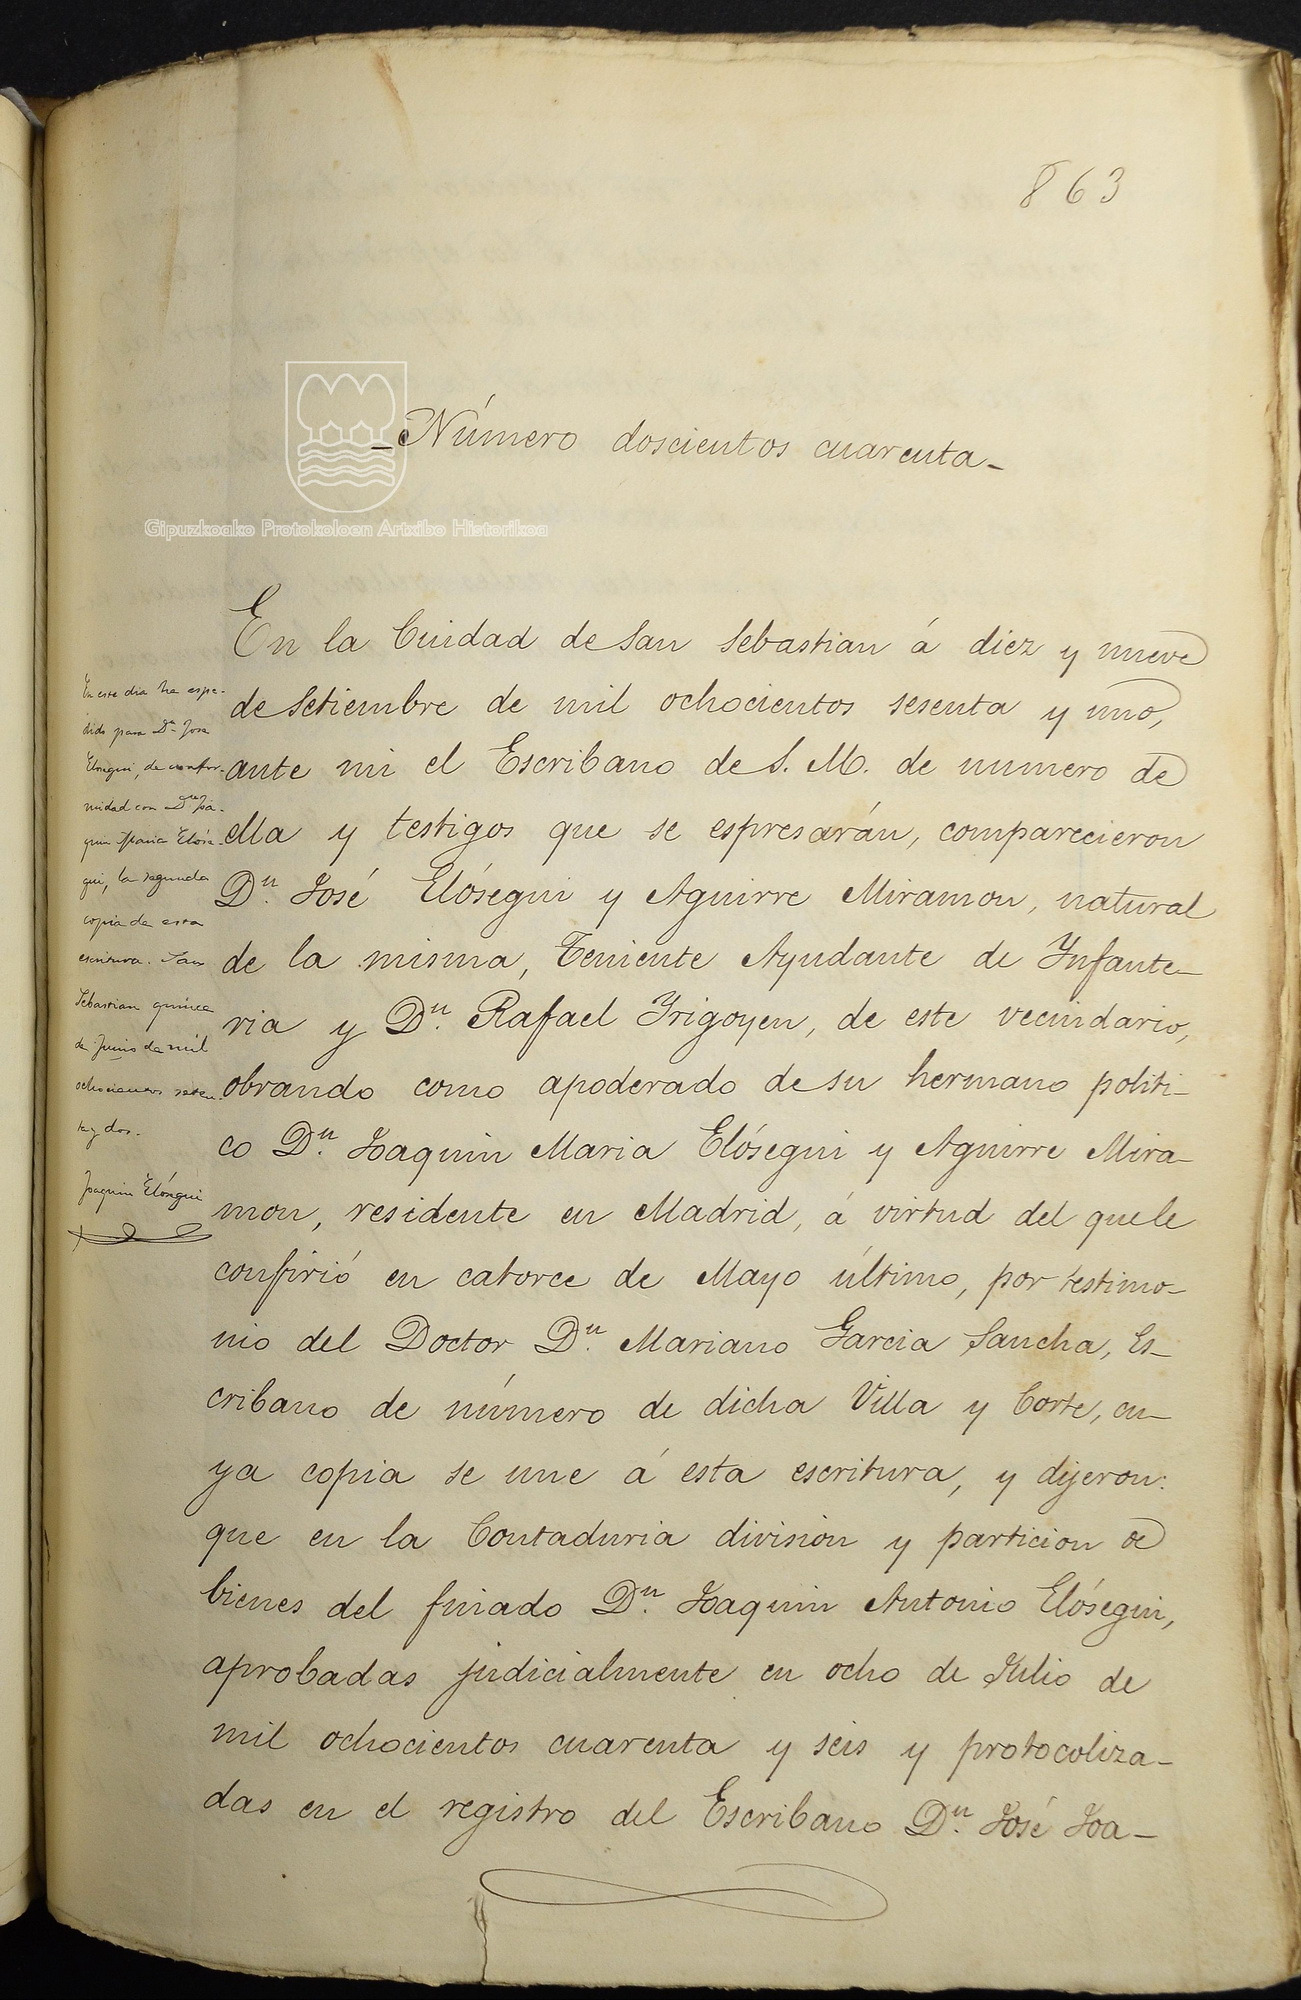 863
Número doscientos cuarenta
Gipuzkoako Protokoloen Artxibo Historikoa
En la Ciudad de San Sebastian á diez y nueve
de Setiembre de mil ochocientos sesenta y uno,
ante mi el Escribano de S. M. de numero de
ella y testigos que se espresarán, comparecieron
Dn. José Elósegui y Aguirre Miramon, natural
de la misma, Teniente Ayudante de Infante-
ria y Dn. Rafael Yrigoyen, de este vecindario,
obrando como apoderado de su hermano politi-
co Dn. Joaquin Maria Elósegui y Aguirre Mira-
mon, residente en Madrid, á virtud del que le
confirió en catorce de Mayo último, por testimo-
nio del Doctor Dn. Mariano Garcia Sancha, Es-
cribano de número de dicha Villa y Corte, cu-
ya copia se une á esta escritura, y dijeron:
que en la Contaduria division y particion de
bienes del finado Dn. Joaquin Antonio Elósegui,
aprobadas judicialmente en ocho de Julio de
mil ochocientos cuarenta y seis y protocoliza-
das en el registro del Escribano Dn. José Joa-
En este dia he espe-
dido para Dn José
Elósegui, de confor-
midad con Dn Joa-
quin Maria Elóse-
gui, la segunda
copia de esta
escritura. San
Sebastian quince
de Junio de mil
ochocientos seten-
ta y dos.
Joaquin Elósegui